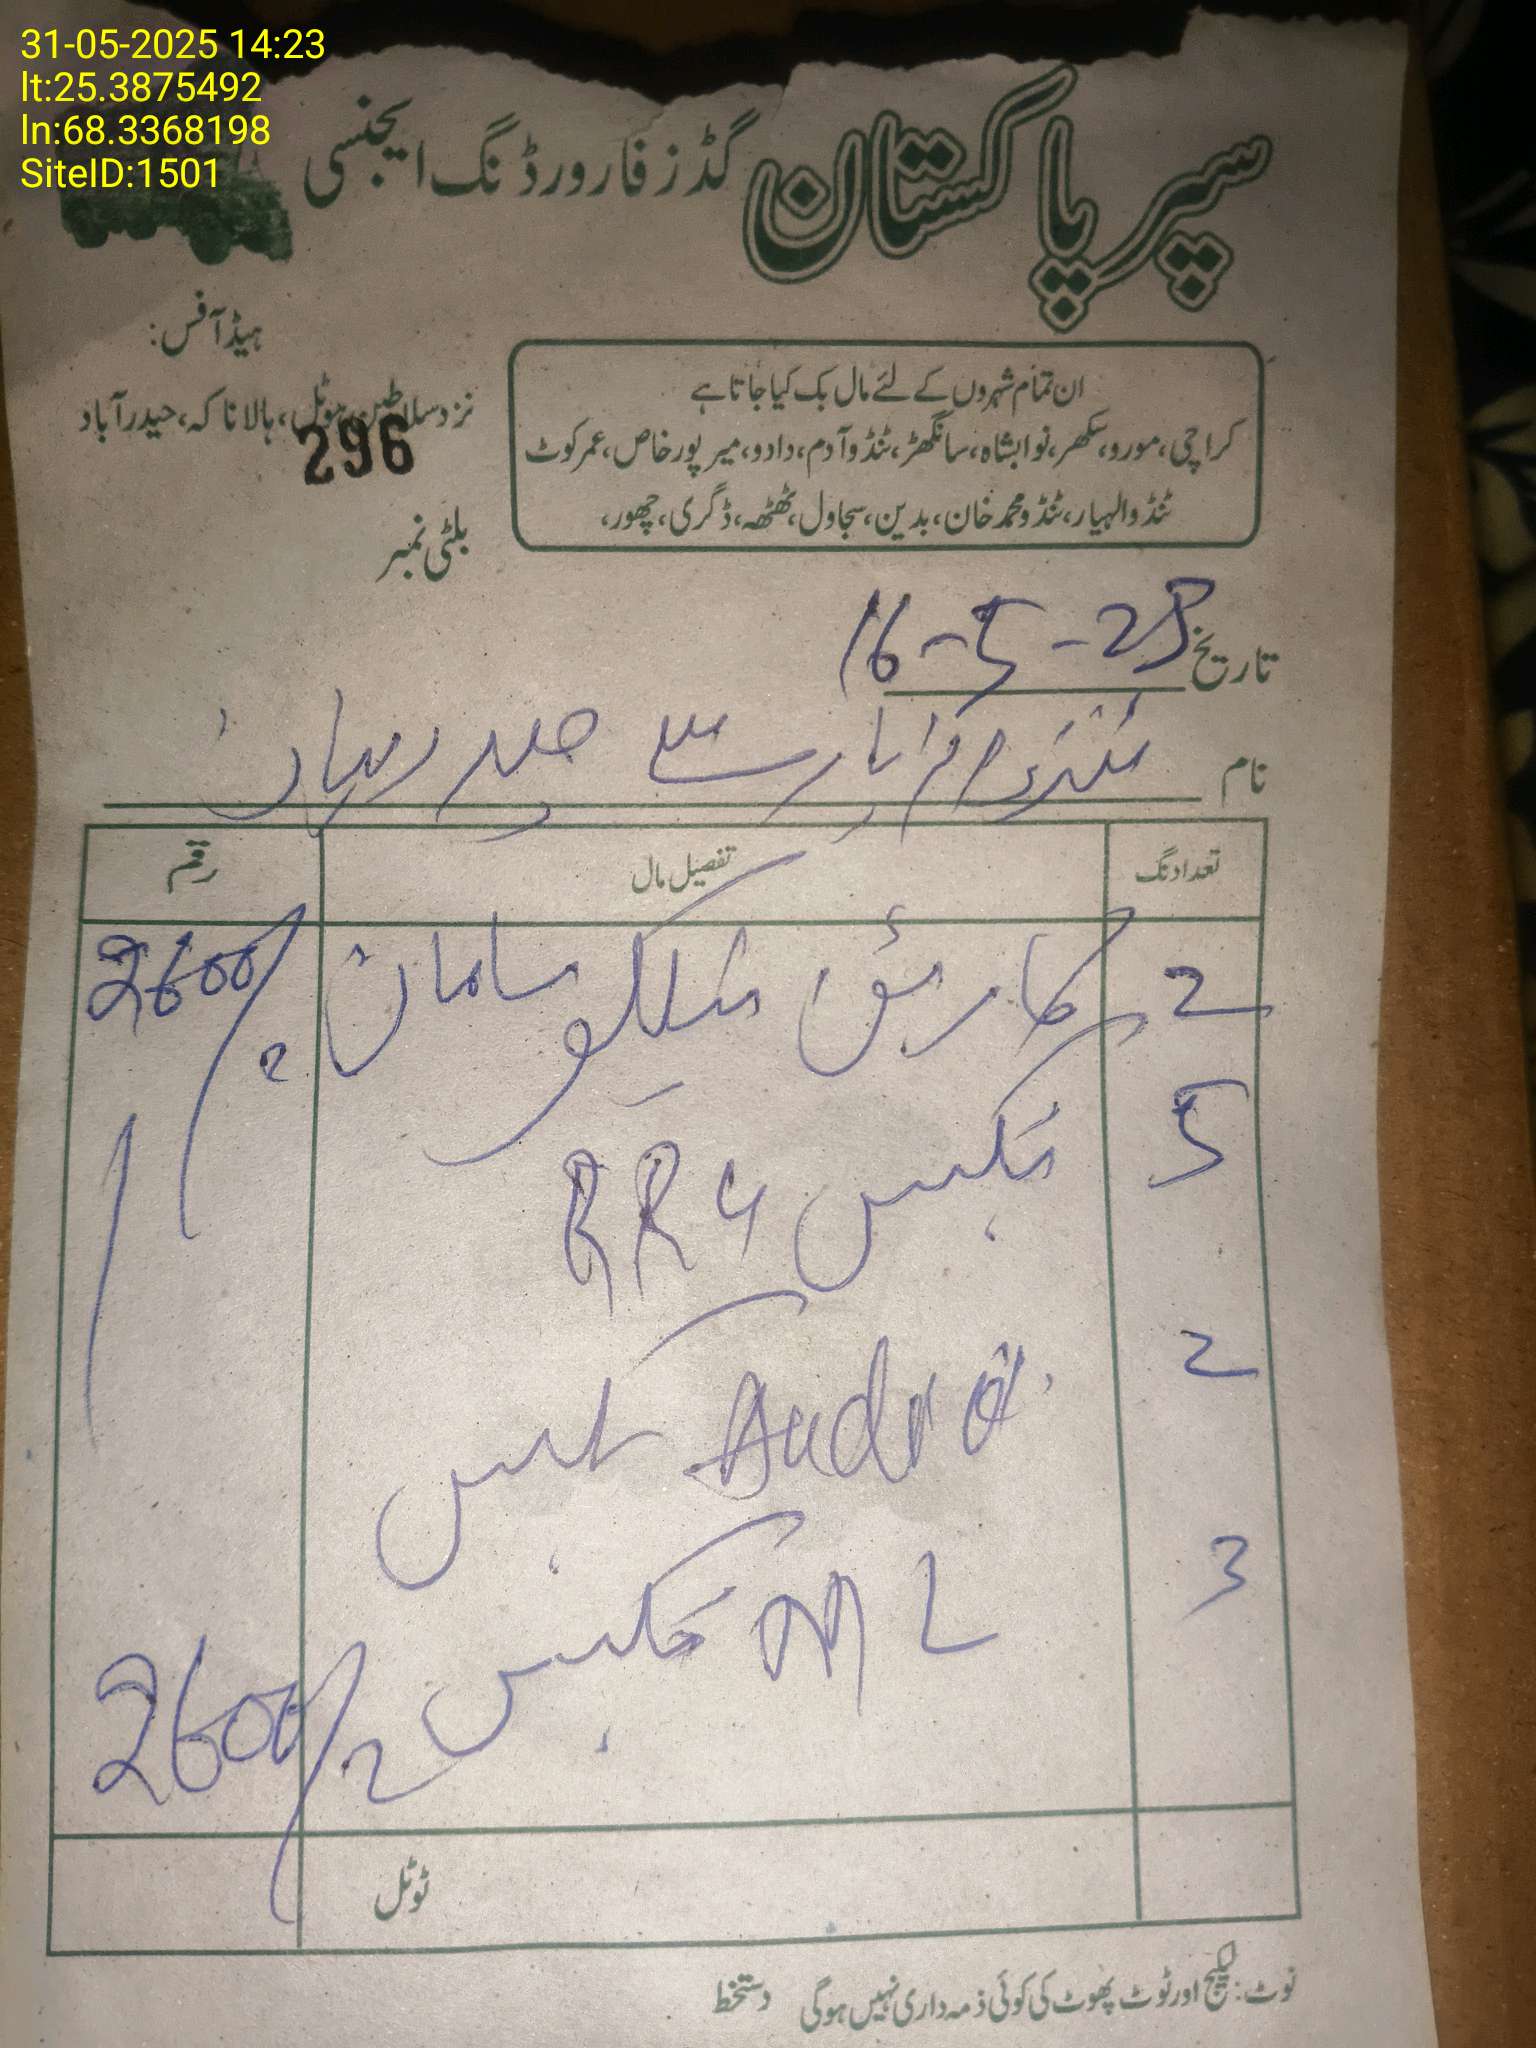 31-05-2025 14:23
lt:25.3875492
ln:68.3368198
SiteID:1501
سپر پاکستان گڈز فارورڈنگ ایجنسی
ہیڈ آفس:
نزد سلاطین ہوٹل، ہالا ناکہ، حیدرآباد
ان تمام شہروں کے لئے مال بک کیا جاتا ہے
کراچی، مورو، سکھر، نوابشاہ، سانگھڑ، ٹنڈوآدم، دادو، میرپورخاص، عمرکوٹ
ٹنڈوالہیار، ٹنڈومحمدخان، بدین، سجاول، ٹھٹھہ، ڈگری، چھور،
296
بلٹی نمبر
تاریخ 16-5-25
نام سے
تعداد نگ تفصیل مال رقم
2 کارٹن سامان 2600/
5 بکس RR4
2 بکس
3 ML بکس 2600/
ٹوٹل
نوٹ: لیکیج اور ٹوٹ پھوٹ کی کوئی ذمہ داری نہیں ہوگی دستخط